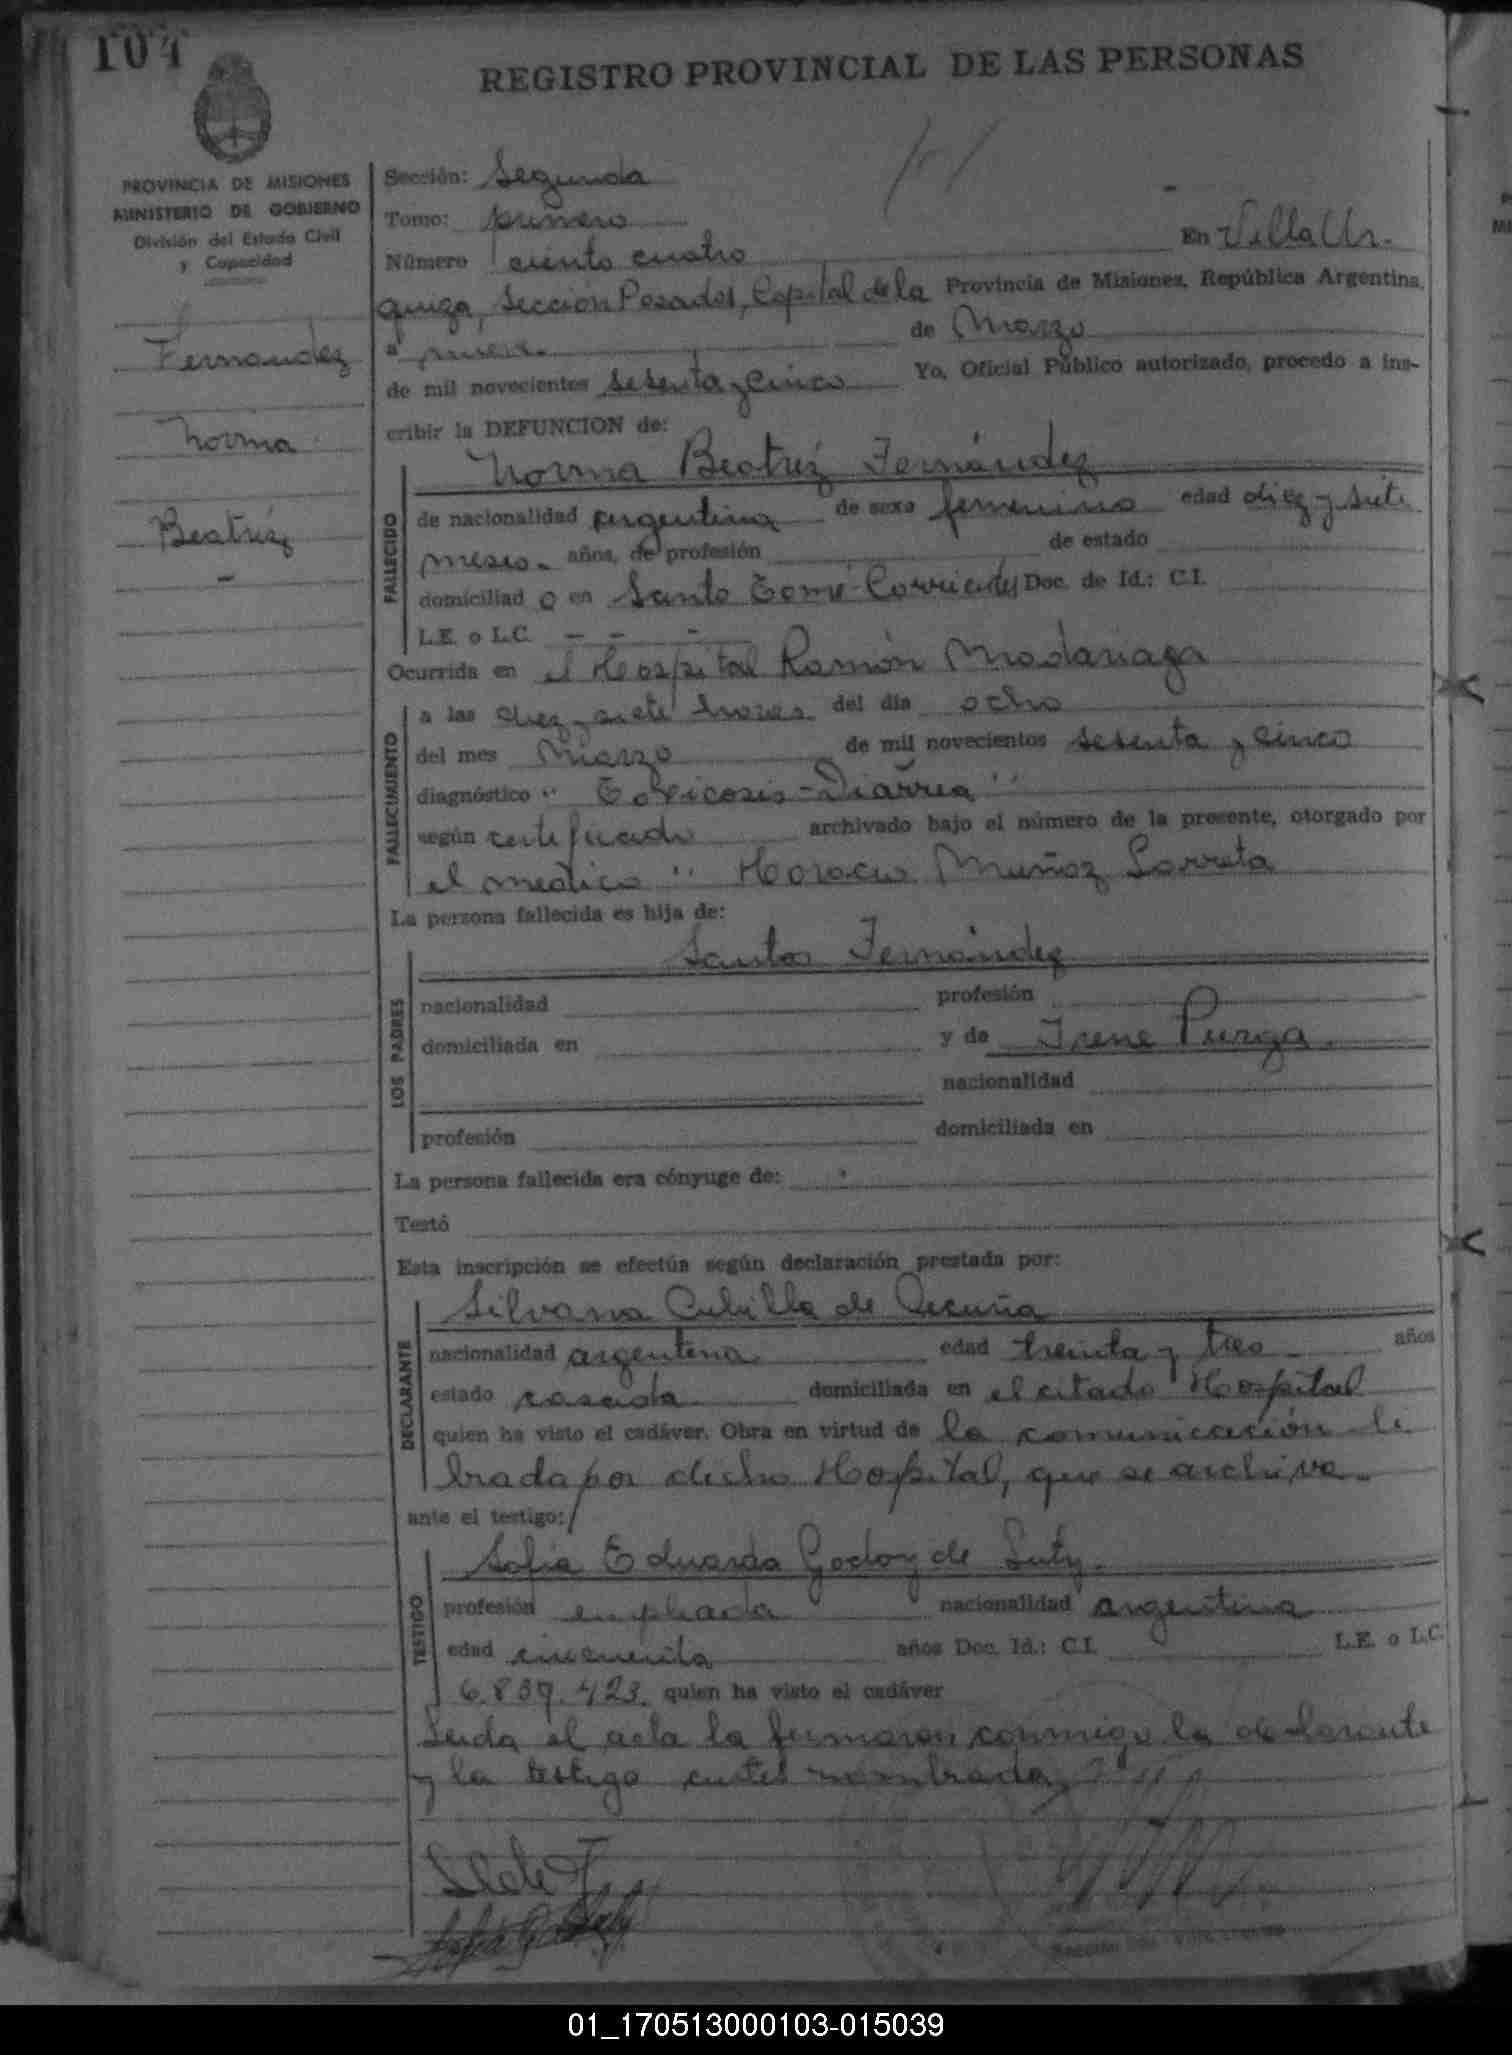 104
REGISTRO PROVINCIAL DE LAS PERSONAS
PROVINCIA DE MISIONES
MINISTERIO DE GOBIERNO
División del Estado Civil
y Capacidad
Fernandez
Norma
Beatriz
Sección: Segunda
Tomo: primero
Número ciento cuatro En Villa Ur-
quiza, Sección Posadas, Capital de la Provincia de Misiones, República Argentina,
a nueve de Marzo
de mil novecientos sesenta y cinco Yo, Oficial Público autorizado, procedo a ins-
cribir la DEFUNCION de:
Norma Beatriz Fernández
FALLECIDO
de nacionalidad argentina de sexo femenino edad diez y siete
meses. años, de profesión de estado
domiciliad o en Santo Tomé-Corrientes Doc. de Id.: C.I.
L.E. o L.C. - - -
Ocurrida en el Hospital Ramón Madariaga
FALLECIMIENTO
a las diez y siete horas del día ocho
del mes Marzo de mil novecientos sesenta y cinco
diagnóstico " Toxicosis-Diarrea "
según certificado archivado bajo el número de la presente, otorgado por
el médico " Horacio Muñoz Larreta
La persona fallecida es hija de:
Santos Fernández
LOS PADRES
nacionalidad profesión
domiciliada en y de Irene Purga.
nacionalidad
profesión domiciliada en
La persona fallecida era cónyuge de:
Testó
Esta inscripción se efectúa según declaración prestada por:
Silvana Cubilla de Acuña
DECLARANTE
nacionalidad argentina edad treinta y tres años
estado casada domiciliada en el citado Hospital
quien ha visto el cadáver. Obra en virtud de la comunicación li
brada por dicho Hospital, que se archiva.
ante el testigo:
Sofia Eduarda Godoy de
TESTIGO
profesión empleada nacionalidad argentina
edad cincuenta años Doc. Id.: C.I. L.E. o L.C.
6.839.423. quien ha visto el cadáver
Leida el acta la firmaron conmigo la declarante
y la testigo antes nombrada
01_170513000103-015039